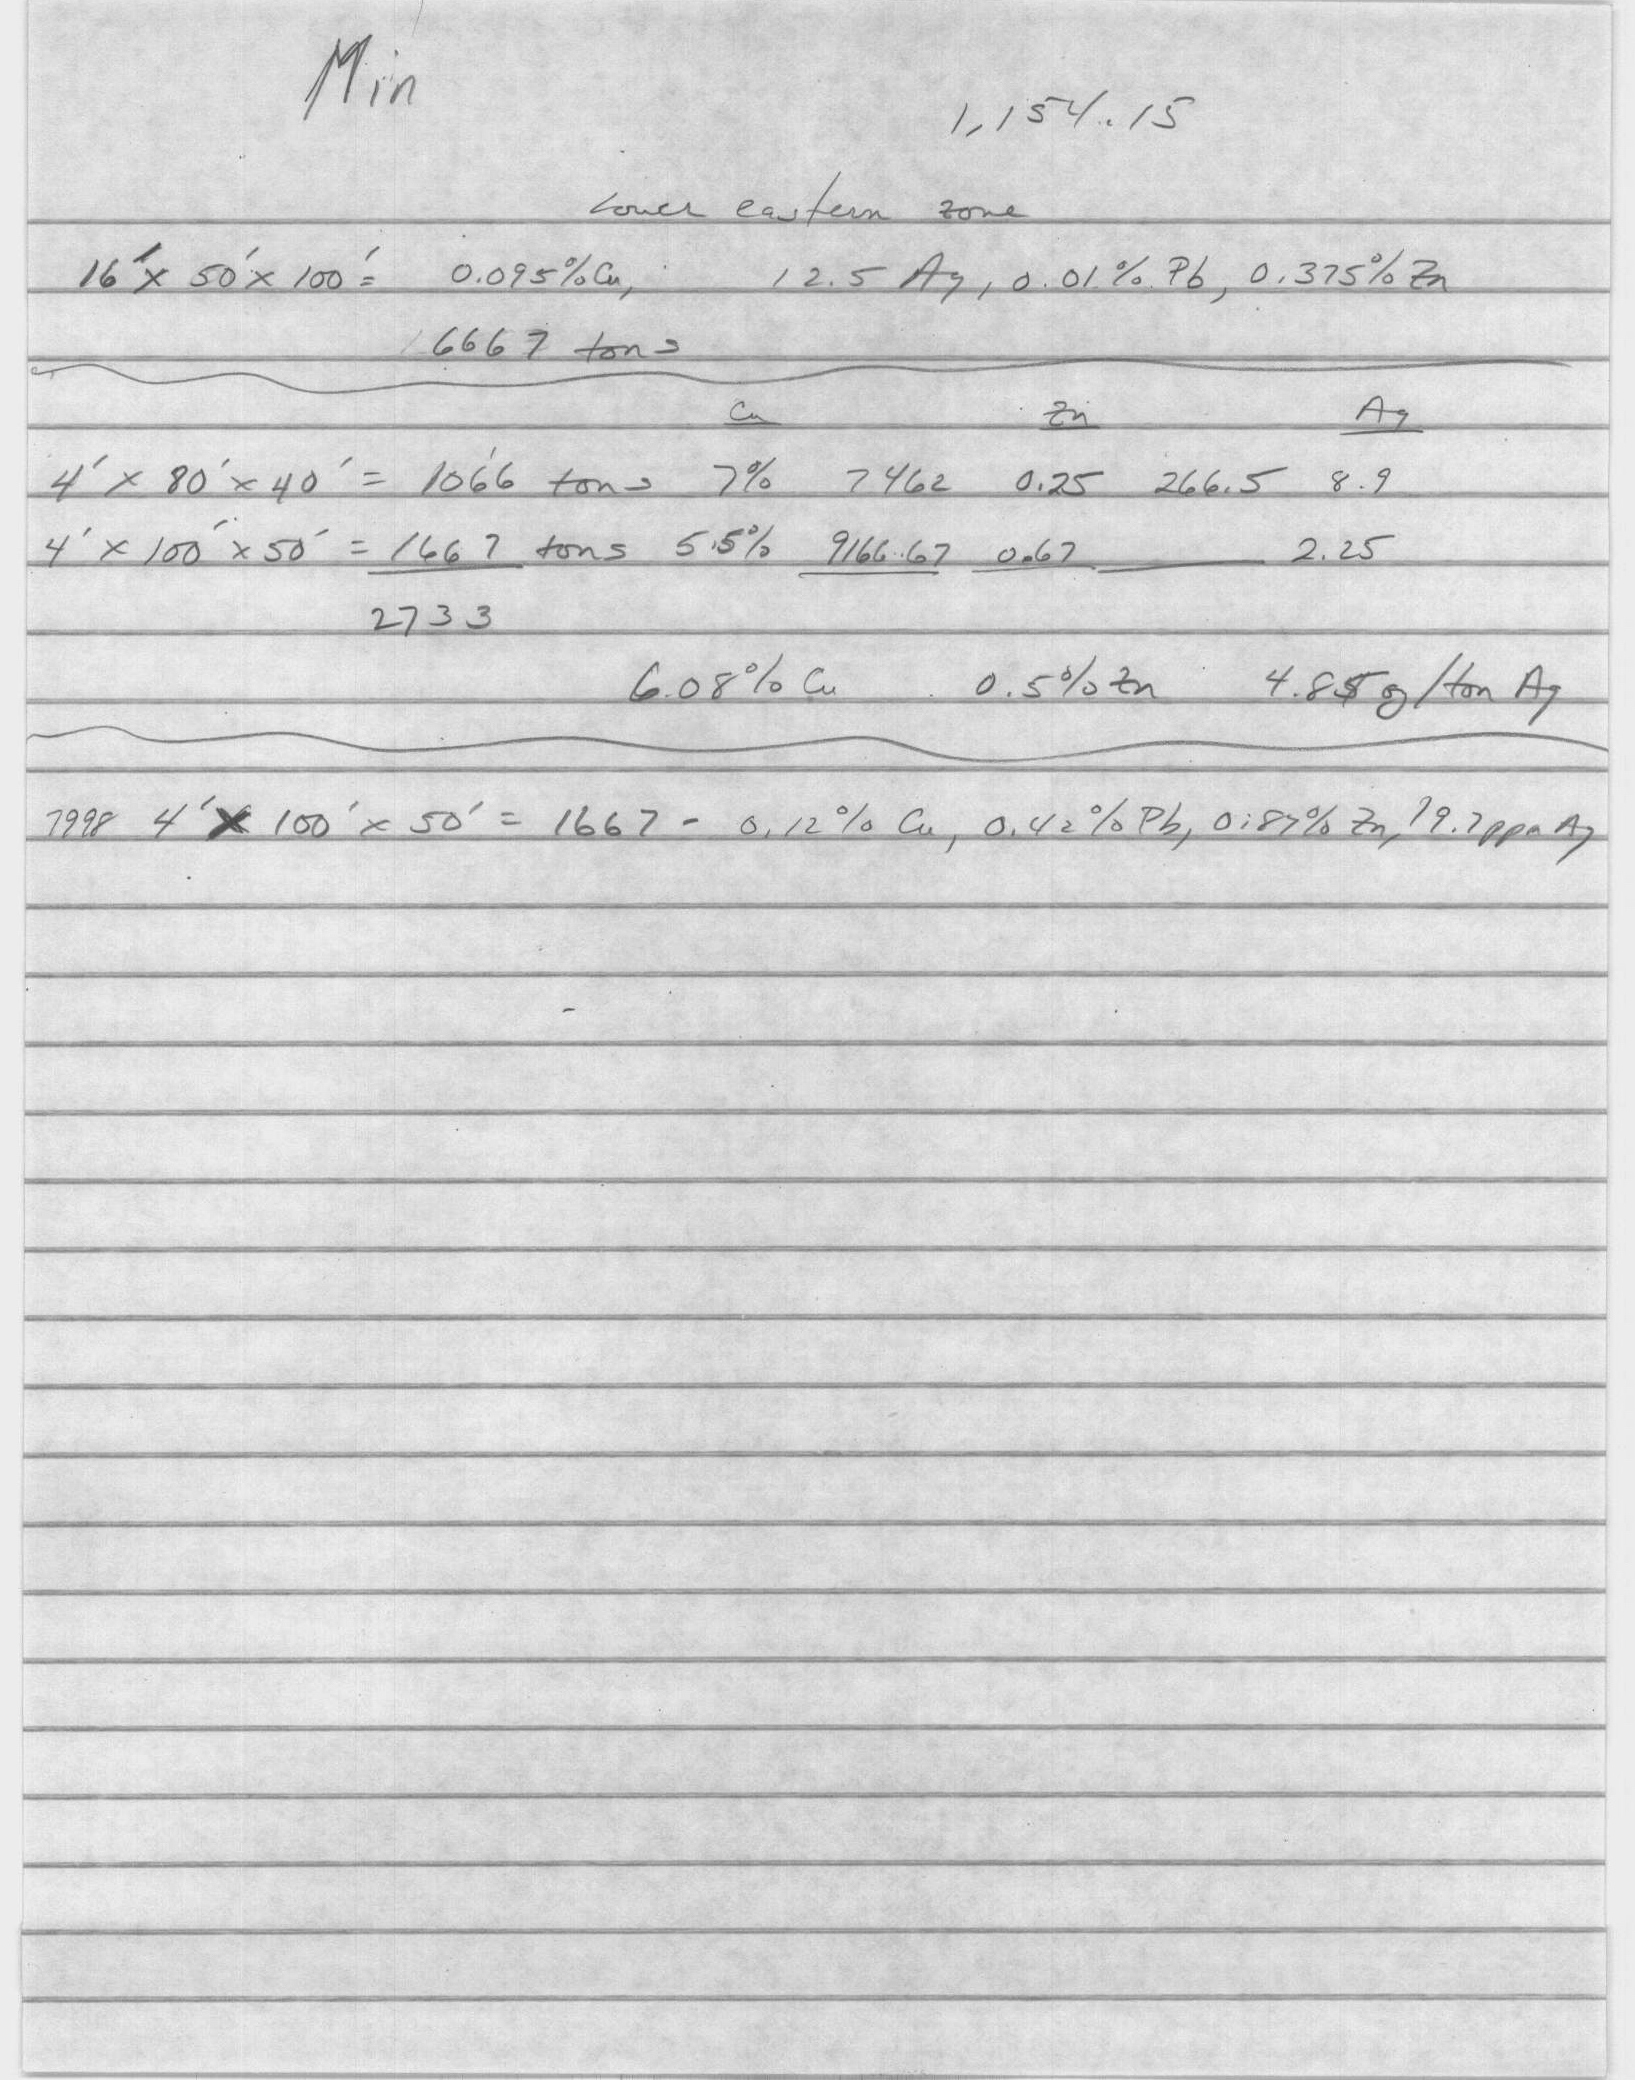 Min
1,154.15
Lower eastern zone
16' x 50' x 100' = 0.095% Cu, 12.5 Ag, 0.01% Pb, 0.375% Zn
6667 tons
Cu Zn Ag
4' x 80' x 40' = 1066 tons 7% 7462 0.25 266.5 8.9
4' x 100' x 50' = 1667 tons 5.5% 9166.67 0.67 2.25
2733
6.08% Cu 0.5% Zn 4.85 oz/ton Ag
7998 4' x 100' x 50' = 1667 - 0.12% Cu, 0.42% Pb, 0.87% Zn, 19.7 ppm Ag